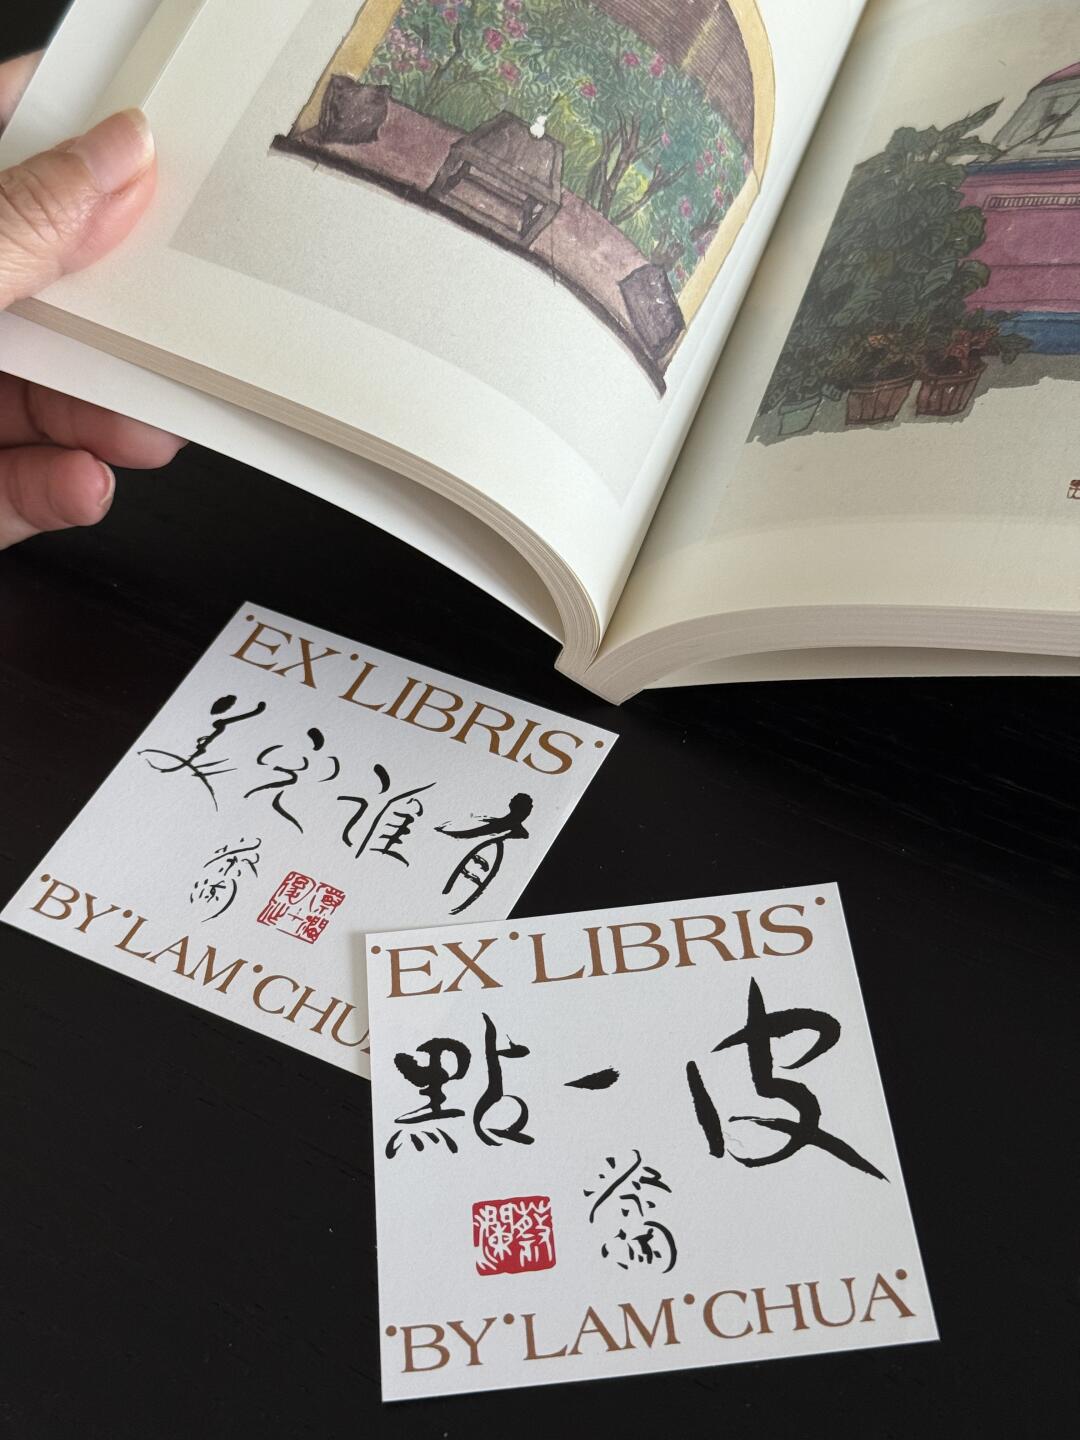 ·EX·LIBRIS·
有誰完美
蔡瀾
·BY·LAM·CHU
·EX·LIBRIS·
皮一點
蔡瀾
蔡瀾
·BY·LAM·CHUA·